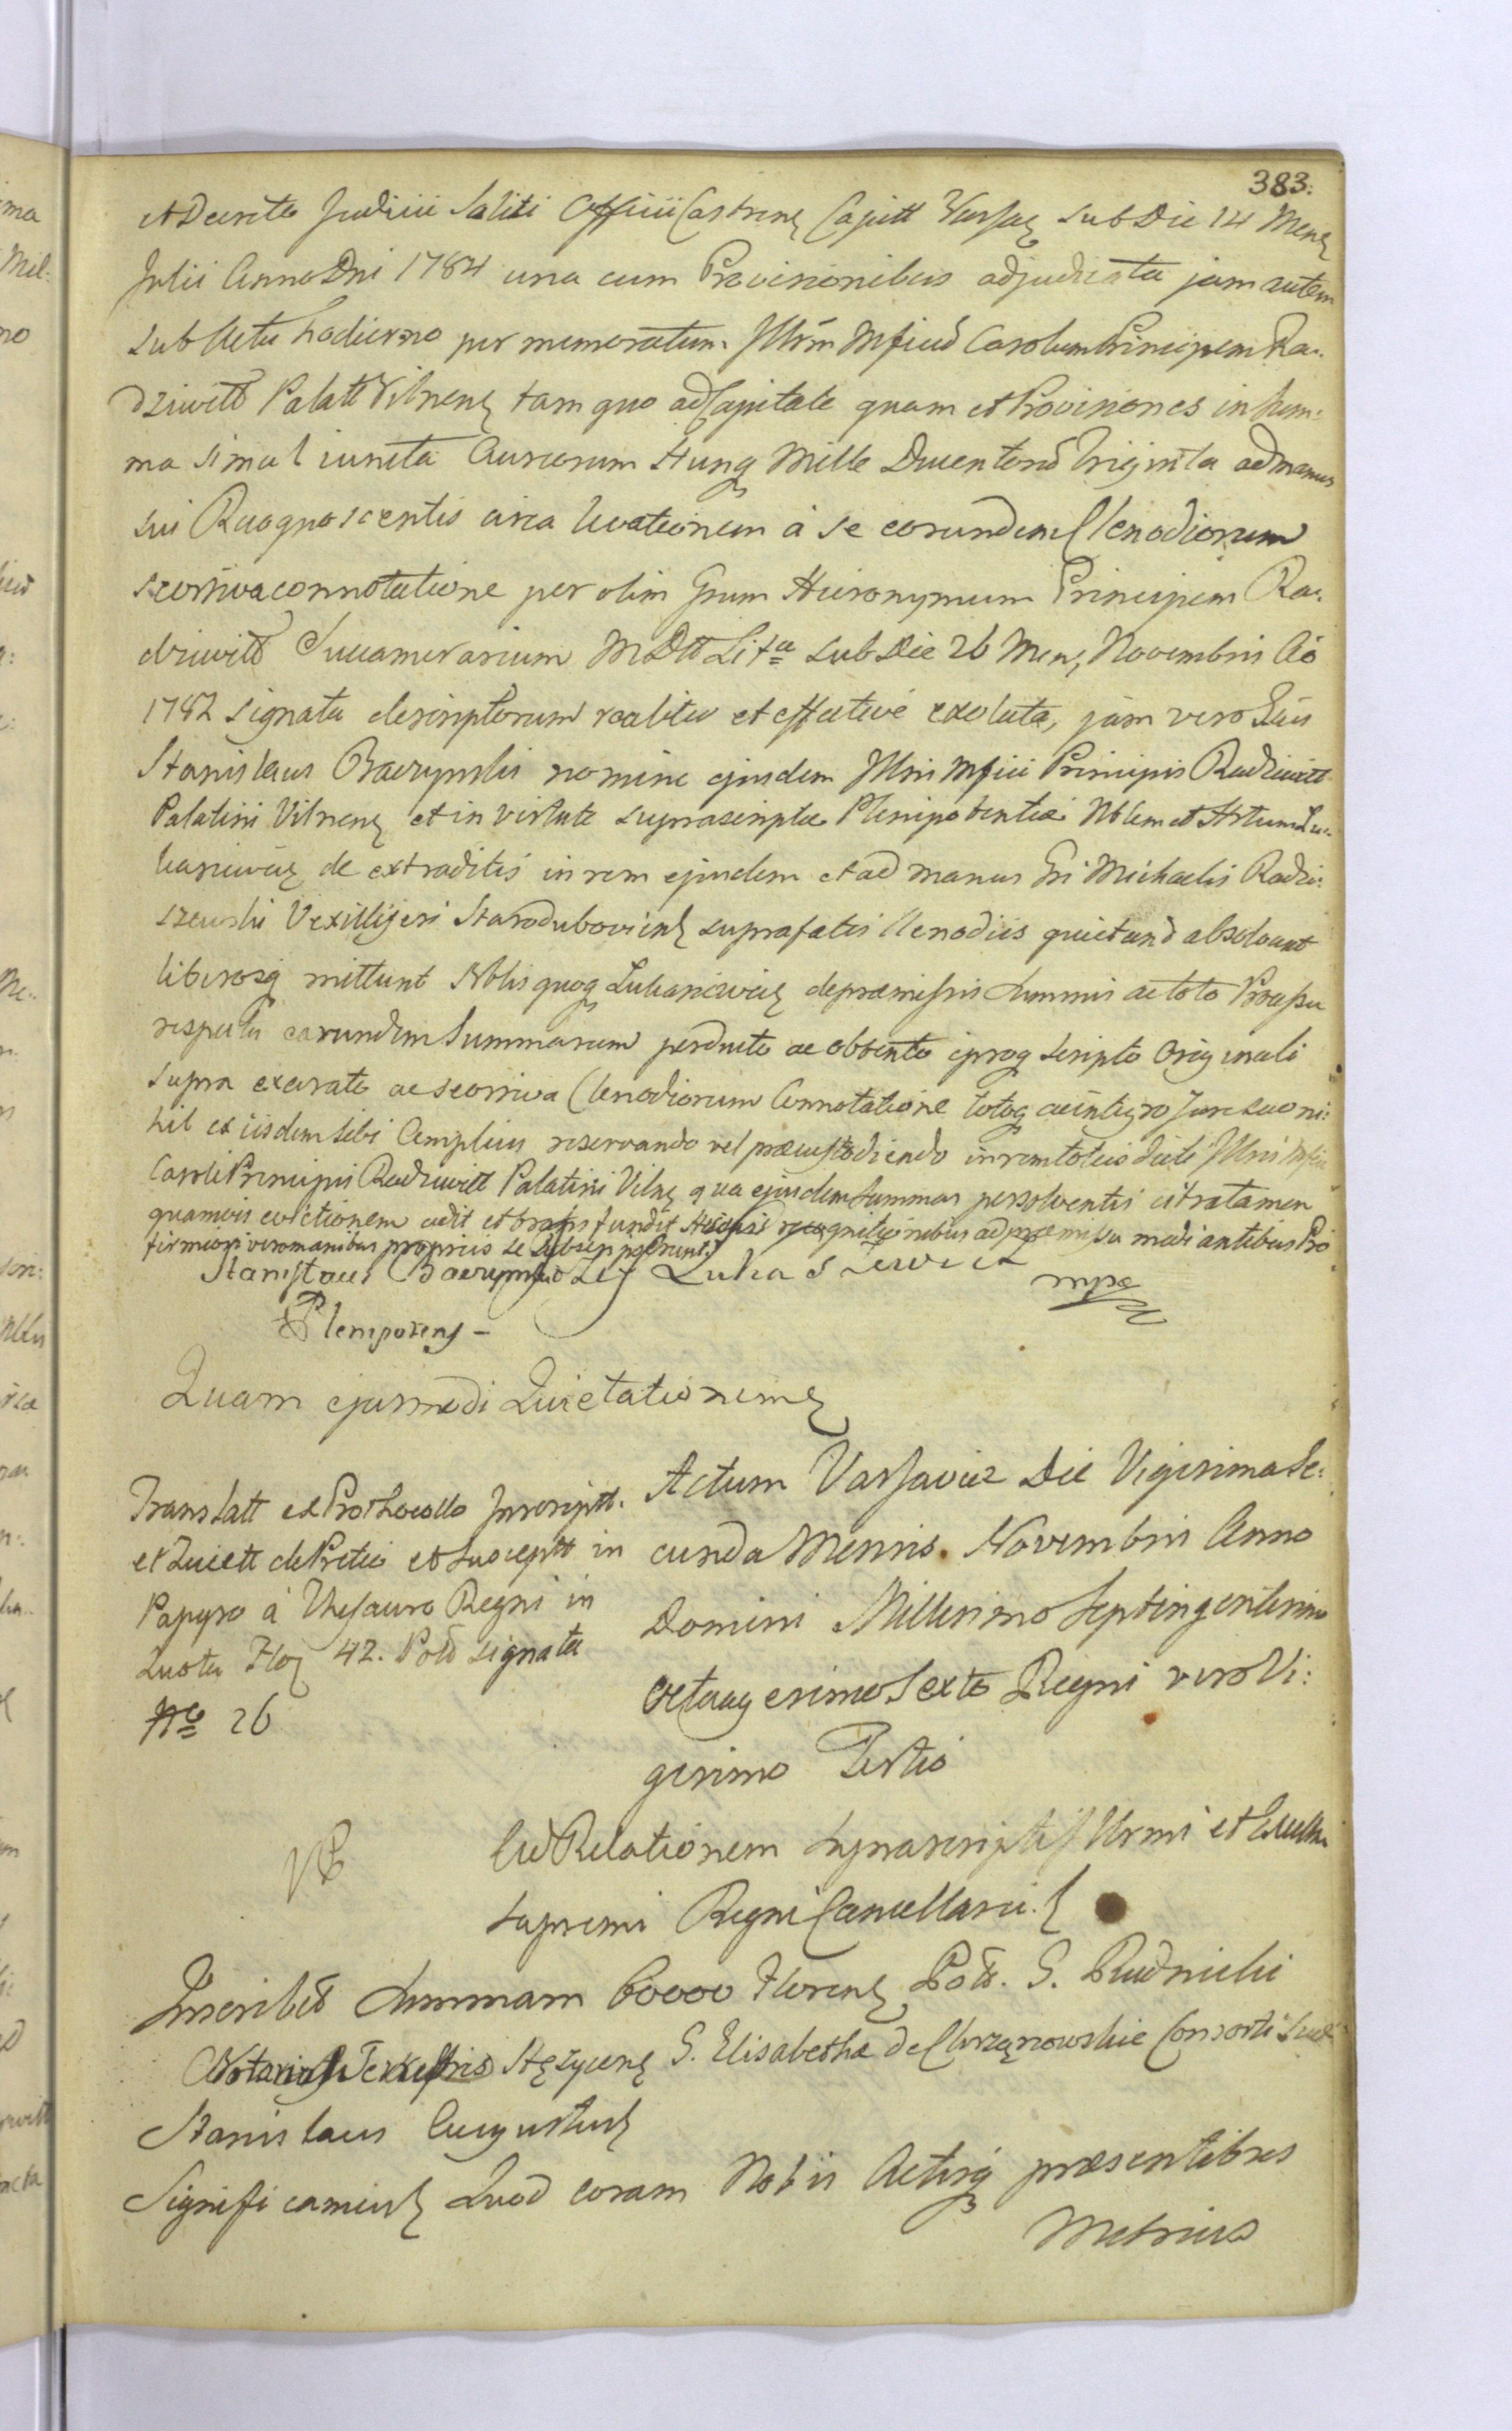 383.
et Decreto Judicii Soliti Officii Castren Capitt Varsav sub Die 14 Mens
Julii Anno Dni 1784 una cum Provisionibus adjudicata jam autem
sub Actu hodierno per memoratum Illrm Mficum Carolum Principem Ra:
dziwiłł Palatt Vilnens tam quo ad Capitale quam et Provisiones in sum:
ma simul iuncta Aureorum Hung Mille Ducentorum Triginta ad manus
sui Recognoscentis circa levationem à se eorundem Clenodiorum
seorsiva connotatione per olim Grum Hieronymum Principem Ra:
dziwiłł Succamerarium M D Litæ sub Die 26 Mens Novembris Ao
1782 signata descriptorum realiter et effective exoluta, jam vero
Stanislaus Baczynski nomine ejusdem Illris Mfici Principis Radziwiłł
Palatini Vilnens et in virtute suprascriptæ Plenipotentiæ Nblem et Lu:
kasiewicz de extraditis in rem ejusdem et ad manus Gri Michaelis Radzi:
szewski Vexilliferi Staroduboviens suprafatis Clenodiis quietand absolvunt
liberosq mittunt Nblis quoq Lukasiewicz de præmissis Summis ac toto Processu
respectu earundem Summarum perducto ac obtento ipsoq scripto Originali
supra exarato ac seorsiva Clenodiorum Connotatione totoq ac integro Jure suo ni:
hil ex iisdem sibi Amplius reservando vel præcustodiendo in rem totius dicti Illris Mfici
Caroli Principis Radziwiłł Palatini Viln qua ejusdem Summas persolventis citra tamen
quamvis evictionem cedit et transfundit Hisque recognitionibus ad præmissa mediantibus Pro
firmiori vero manibus propriis se Subscripserunt
Stanislaus Baczynski Lukasiewicz mpa
Plenipotens -
Quam ejusmodi Quietationem
Translatt ex Prothocollo Inscriptt.
et Quiett de Pretio et Susceptt in
Papyro à Thesauro Regni in
Quota Flor 42. Poll signata
No 26
Actum Varsaviæ Die Vigesima Se:
cunda Mensis Novembris Anno
Domini Millesimo Septingentesimo
Octuagesimo Sexto Regni vero Vi:
gesimo Tertio
Ad Relationem suprascripti Illrmi et
Supremi Regni Cancellarii
Inscribit Summam 60000 Floren Poll. G. Rudnicki
Notarius Terrestris Stężycen G. Elisabetha de Chrząnowskie Consorti Suæ
Stanislaus Augustus
Significamus Quod coram Nobis Actisq præsentibus
Metrices